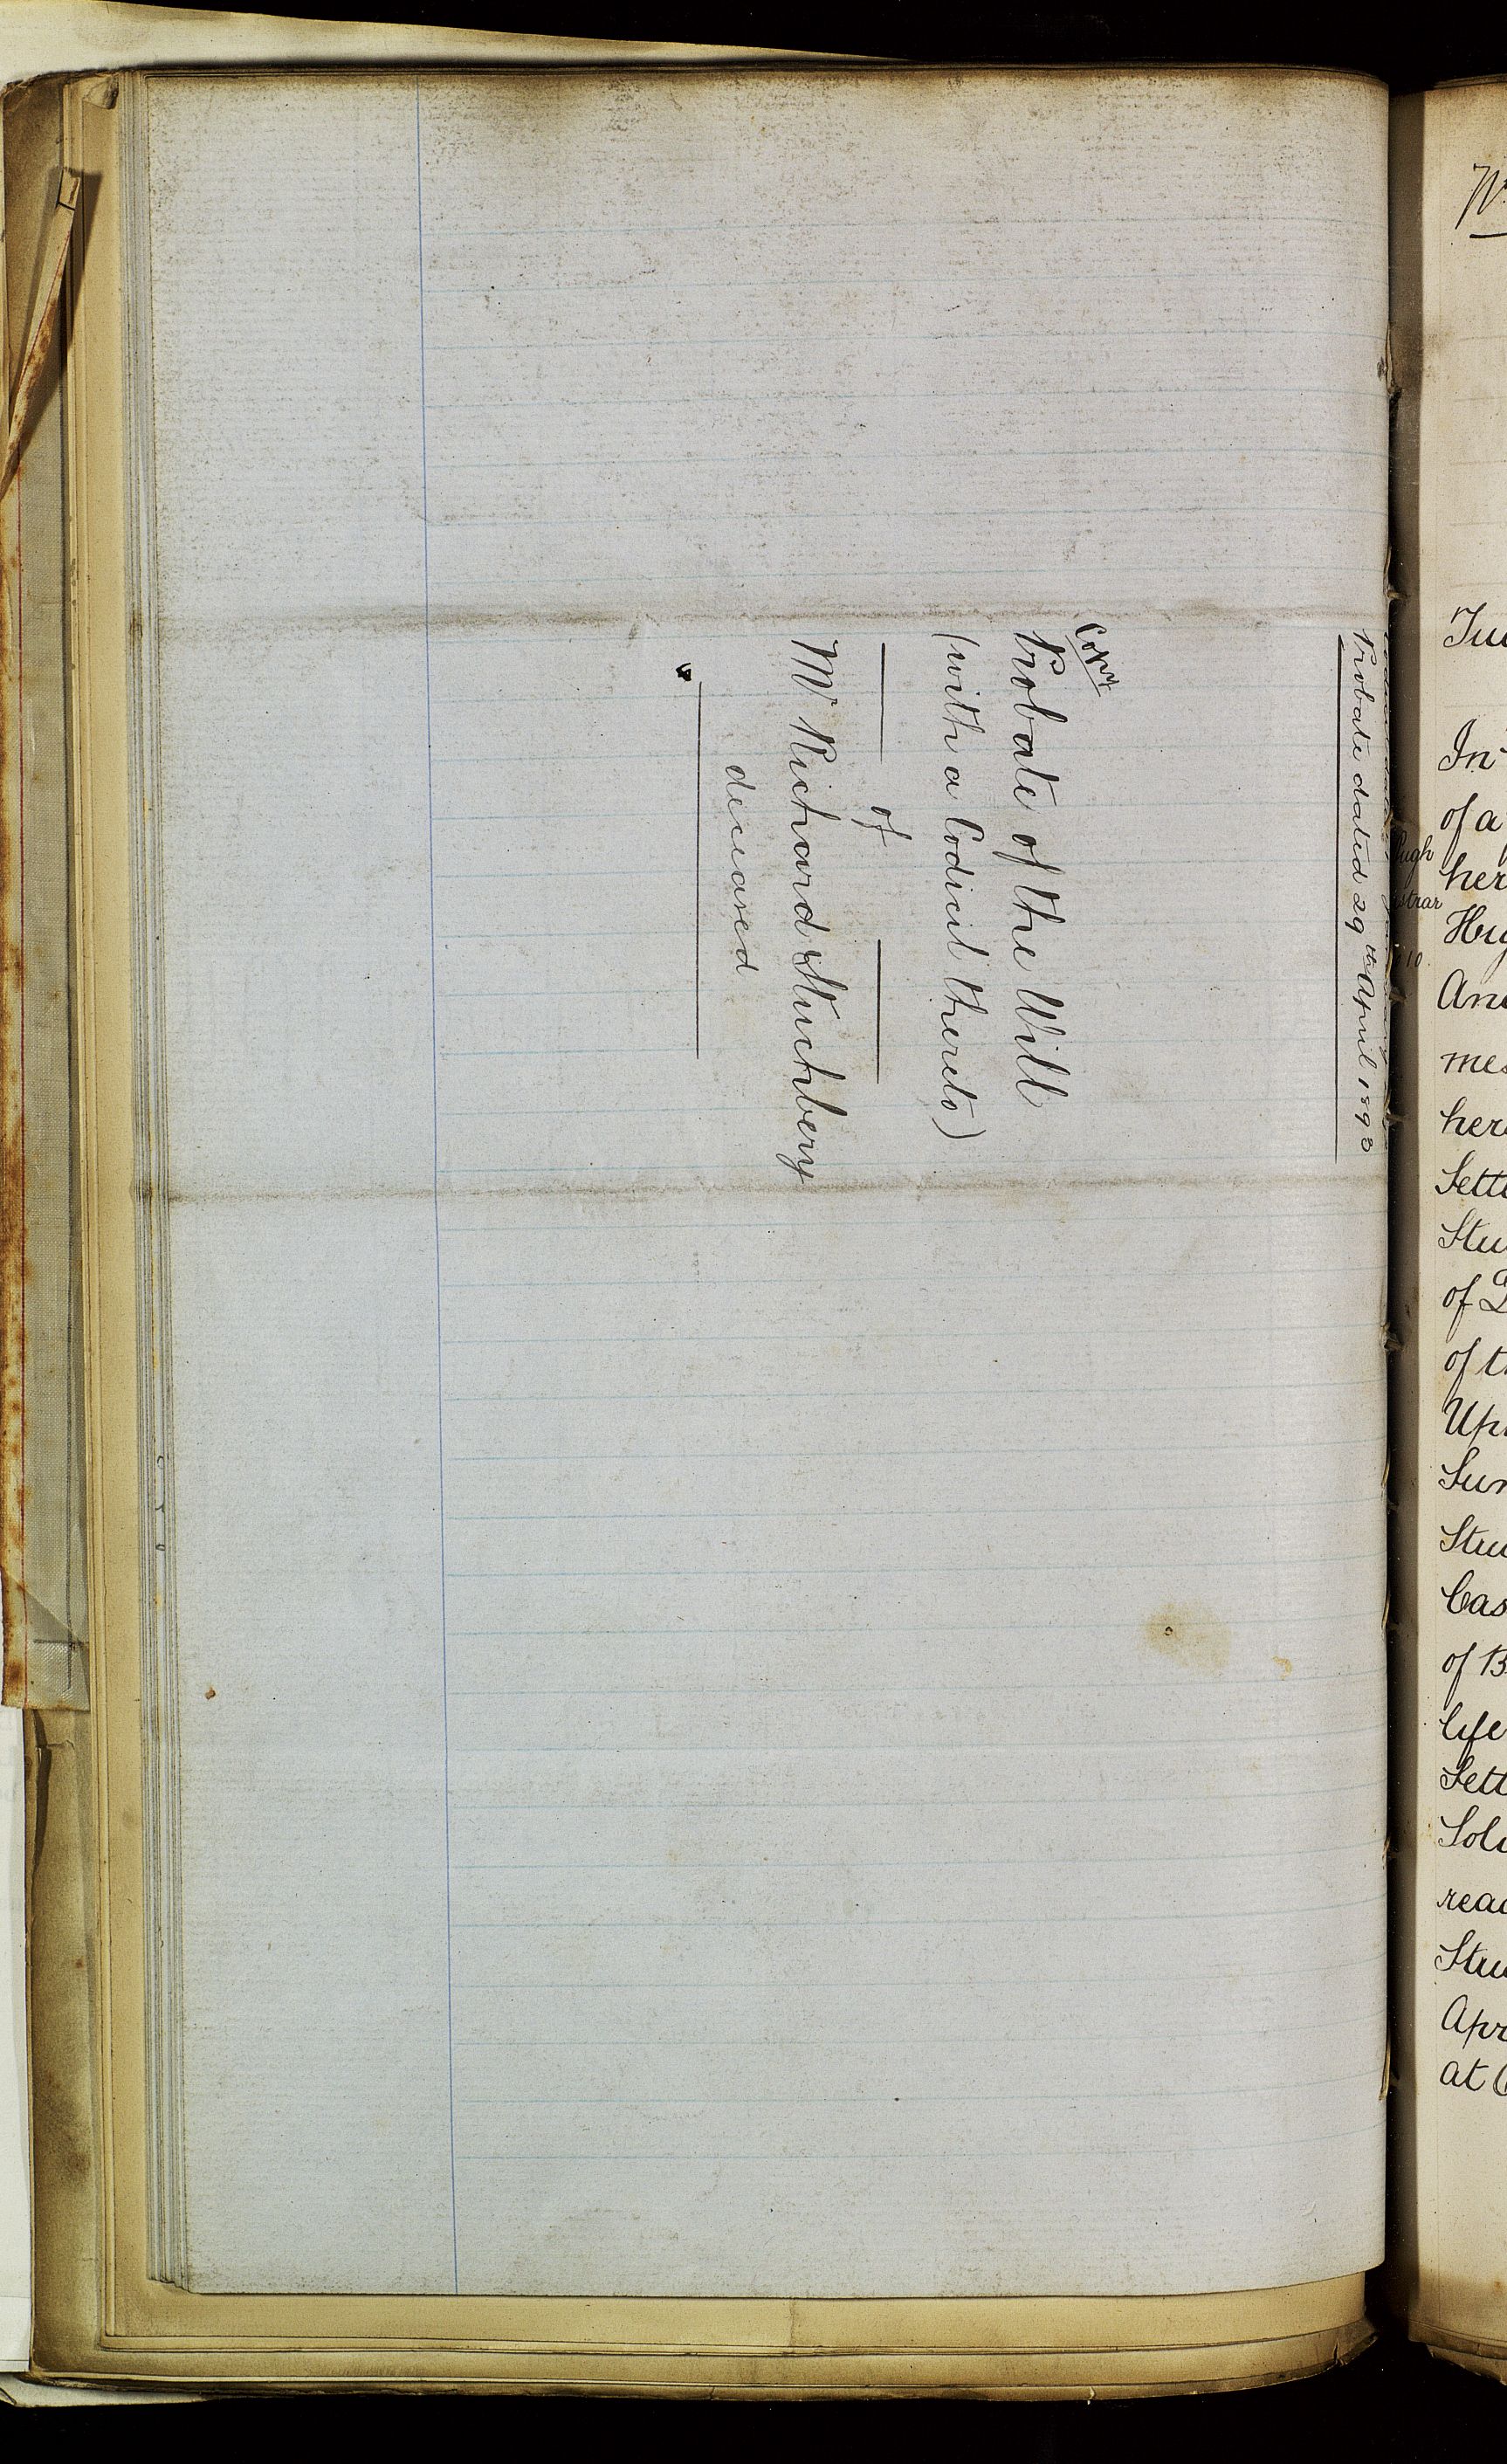 Probate dated 29th April 1893
Copy
Probate of the Will
(with a Codicil thereto)
of
Mr Richard Stuchbery
deceased
ugh
strar
10
Tu
In
of a
her
Hug
And
mes
here
Settl
Stu
of D
of th
Upt
Sum
Stuc
Cas
of B
life
Sett
Soli
read
Stu
Apr
at C